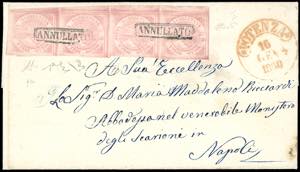 ANNULLATO
ANNULLATO
POTENZA
16
A Sua Eccellenza
La Sig.ª D. Maria Maddalena Ricciardi
Abbadessa nel venerabile Monistero
degli scarione in
Napoli